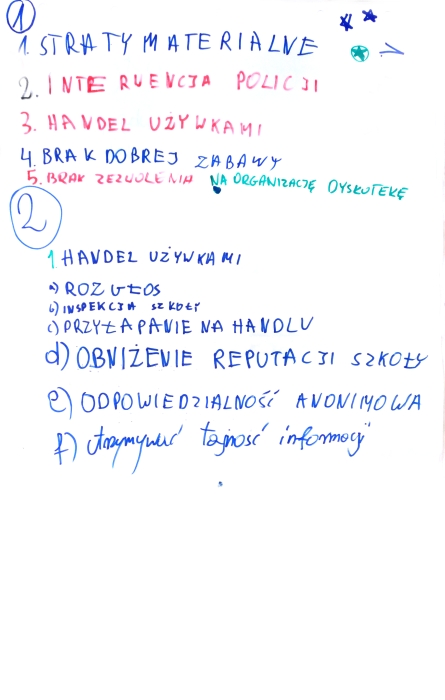 1
1. STRATY MATERIALNE
2. INTERWENCJA POLICJI
3. HANDEL UŻYWKAMI
4. BRAK DOBREJ ZABAWY
5. BRAK ZEZWOLENIA NA ORGANIZACJĘ DYSKOTEKĘ
2
1 HANDEL UŻYWKAMI
a) ROZGŁOS
b) INSPEKCJA SZKOŁY
c) PRZYŁAPANIE NA HANDLU
d) OBNIŻENIE REPUTACJI SZKOŁY
e) ODPOWIEDZIALNOŚĆ ANONIMOWA
f) utrzymywać tajność informacji